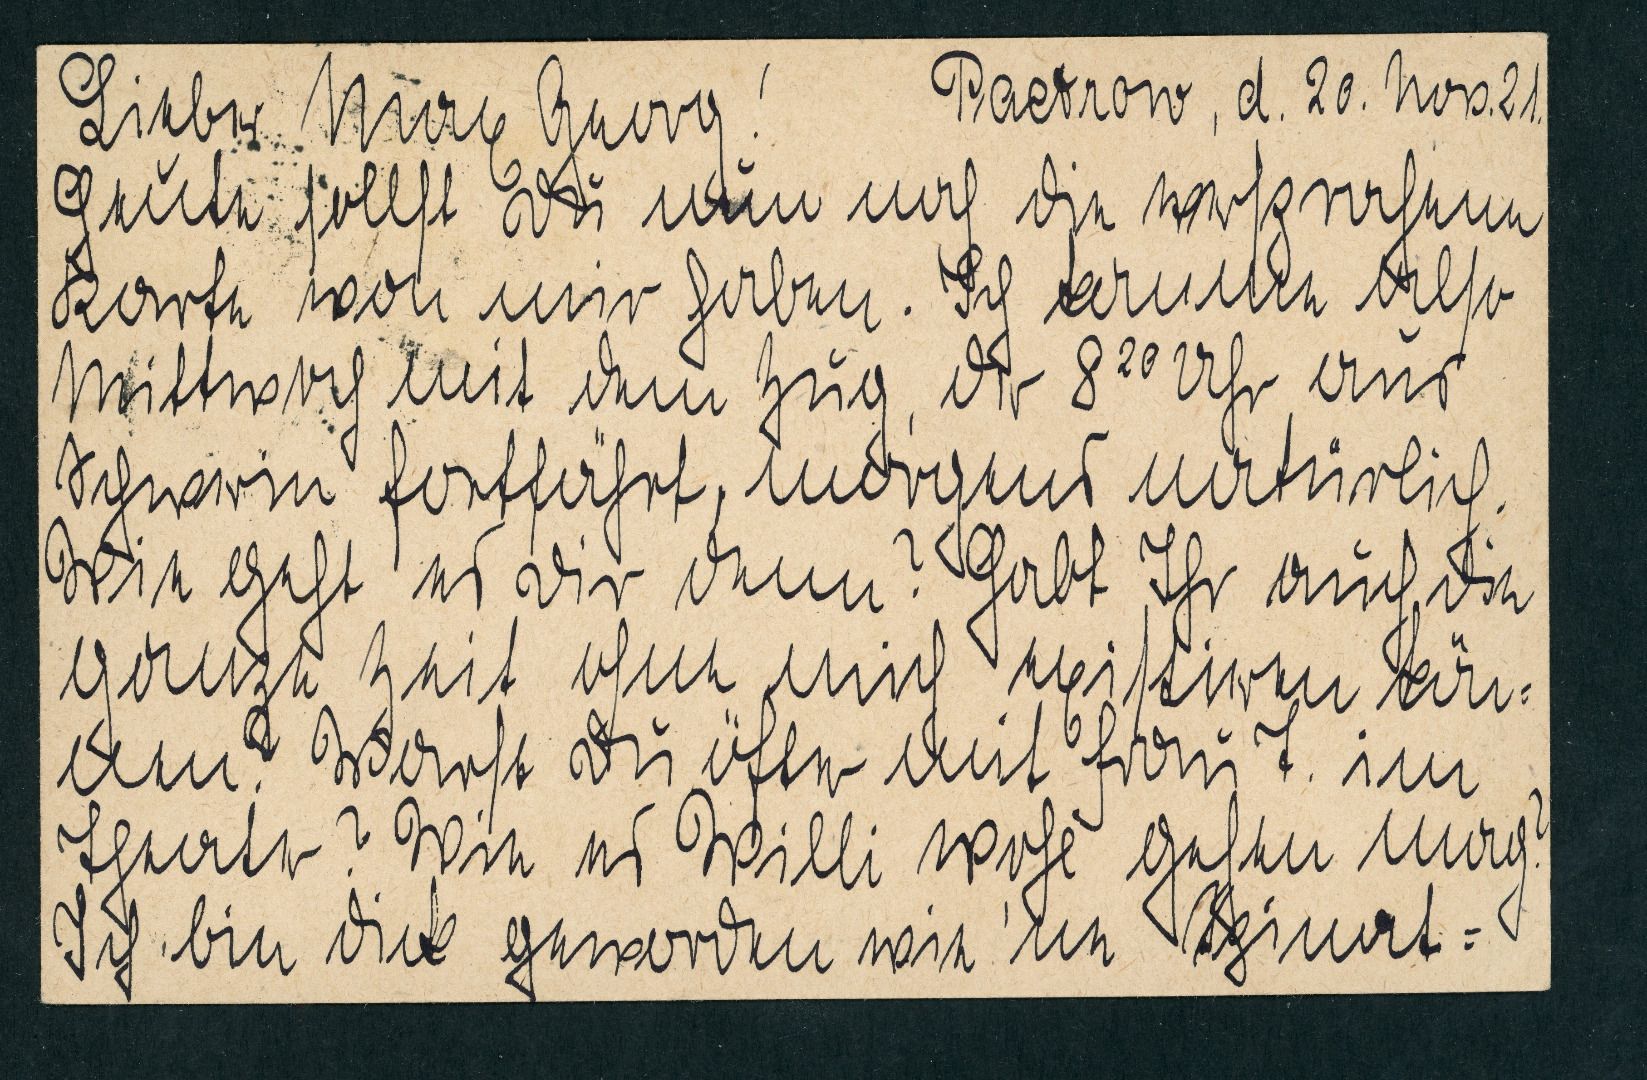 Lieber Max Georg! Paetrow, d. 20. Nov. 21.
Heute sollst Du nun noch die versprochene
Karte von mir haben. Ich komme also
Mittwoch mit dem Zug, der 8 20 Uhr aus
Schwerin fortfährt, morgens natürlich.
Wie geht es Dir denn? Habt Ihr auch die
ganze Zeit ohne mich existieren kön=
nen? Warst Du öfter mit Frau T. im
Theater? Wie es Willi wohl gehen mag?
Ich bin dick geworden wie 'ne Spinat=